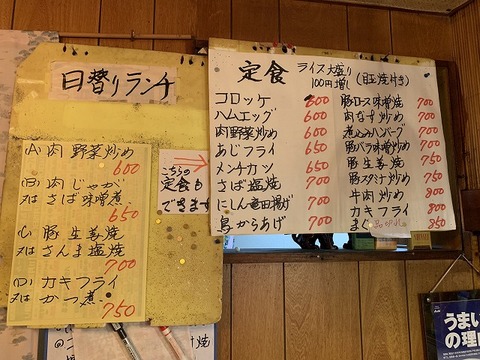 日替りランチ
(A) 肉野菜炒め
600
(B) 肉じゃが
又は さば味噌煮
650
(C) 豚生姜焼
又は さんま塩焼
700
(D) カキフライ
又は かつ煮
750
こちらの
定食も
できます
定食
ライス大盛り
100円増し
(目玉焼付き)
コロッケ 600
ハムエッグ 600
肉野菜炒め 600
あじフライ 650
メンチカツ 650
さば塩焼 700
にしん竜田揚げ 700
鳥からあげ 700
豚ロース味噌焼 700
肉なす炒め 700
煮込みハンバーグ 700
豚バラ味噌炒め 700
豚生姜焼 750
豚スタミナ炒め 750
牛肉炒め 800
カキフライ 800
まぐ 850
うまい
の理由